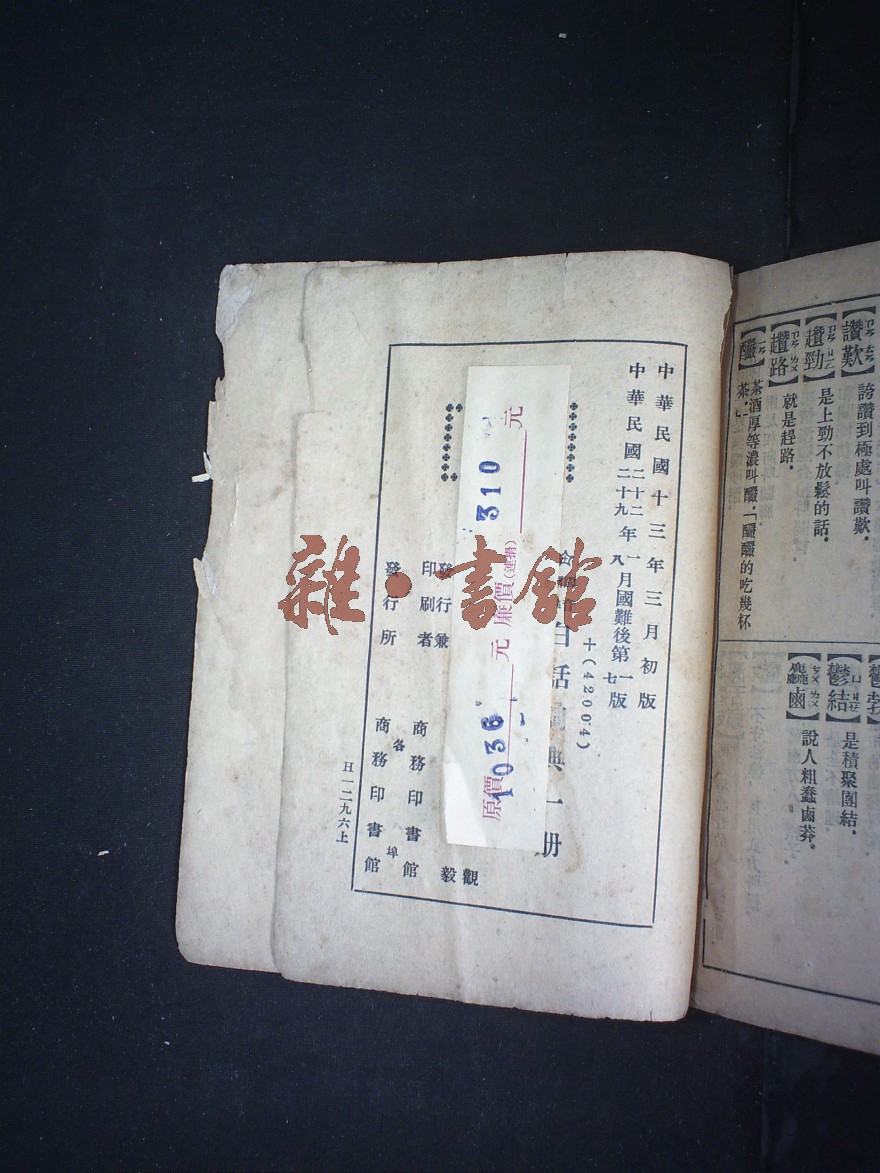 中華民國十三年三月初版
中華民國二十二年一月國難後第一版
二十九 八 七
十(42004)
白話詞典一冊
觀
毅
發行兼
印刷者
商務印書館
發行所
各埠
商務印書館
H一二九六上
原價 1036 元
廉價(運滙) 310 元
雜·書館
【讚歎】
誇讚到極處叫讚歎.
【趲勁】
是上勁不放鬆的話.
【趲路】
就是趕路.
【釅】
茶酒厚等濃叫釅.「釅釅的吃幾杯
茶.」
【鬱結】
是積聚團結.
【麤鹵】
說人粗蠢鹵莽.